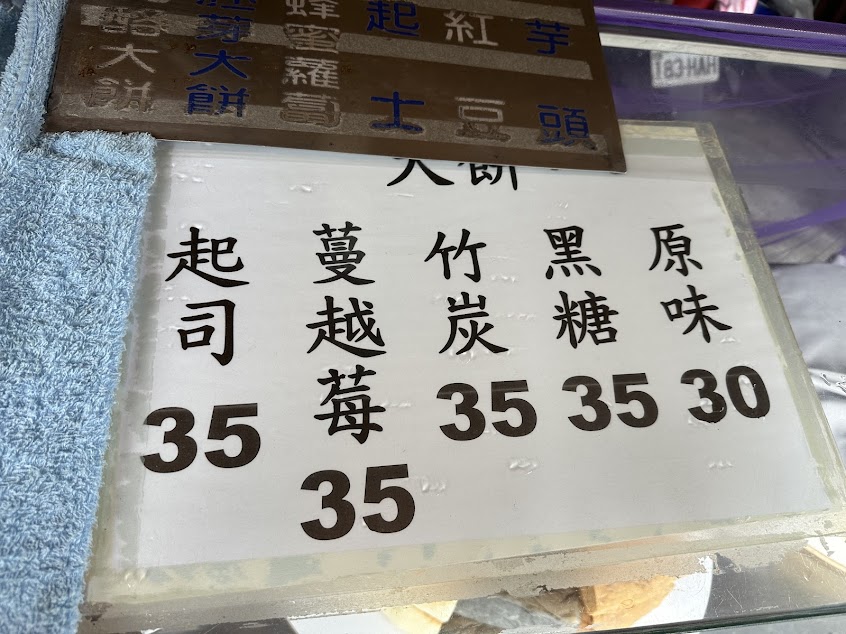 芋頭
紅豆
起士
蜂蜜蘿蔔
胚芽大餅
酪大餅
大餅
原味 30
黑糖 35
竹炭 35
蔓越莓 35
起司 35